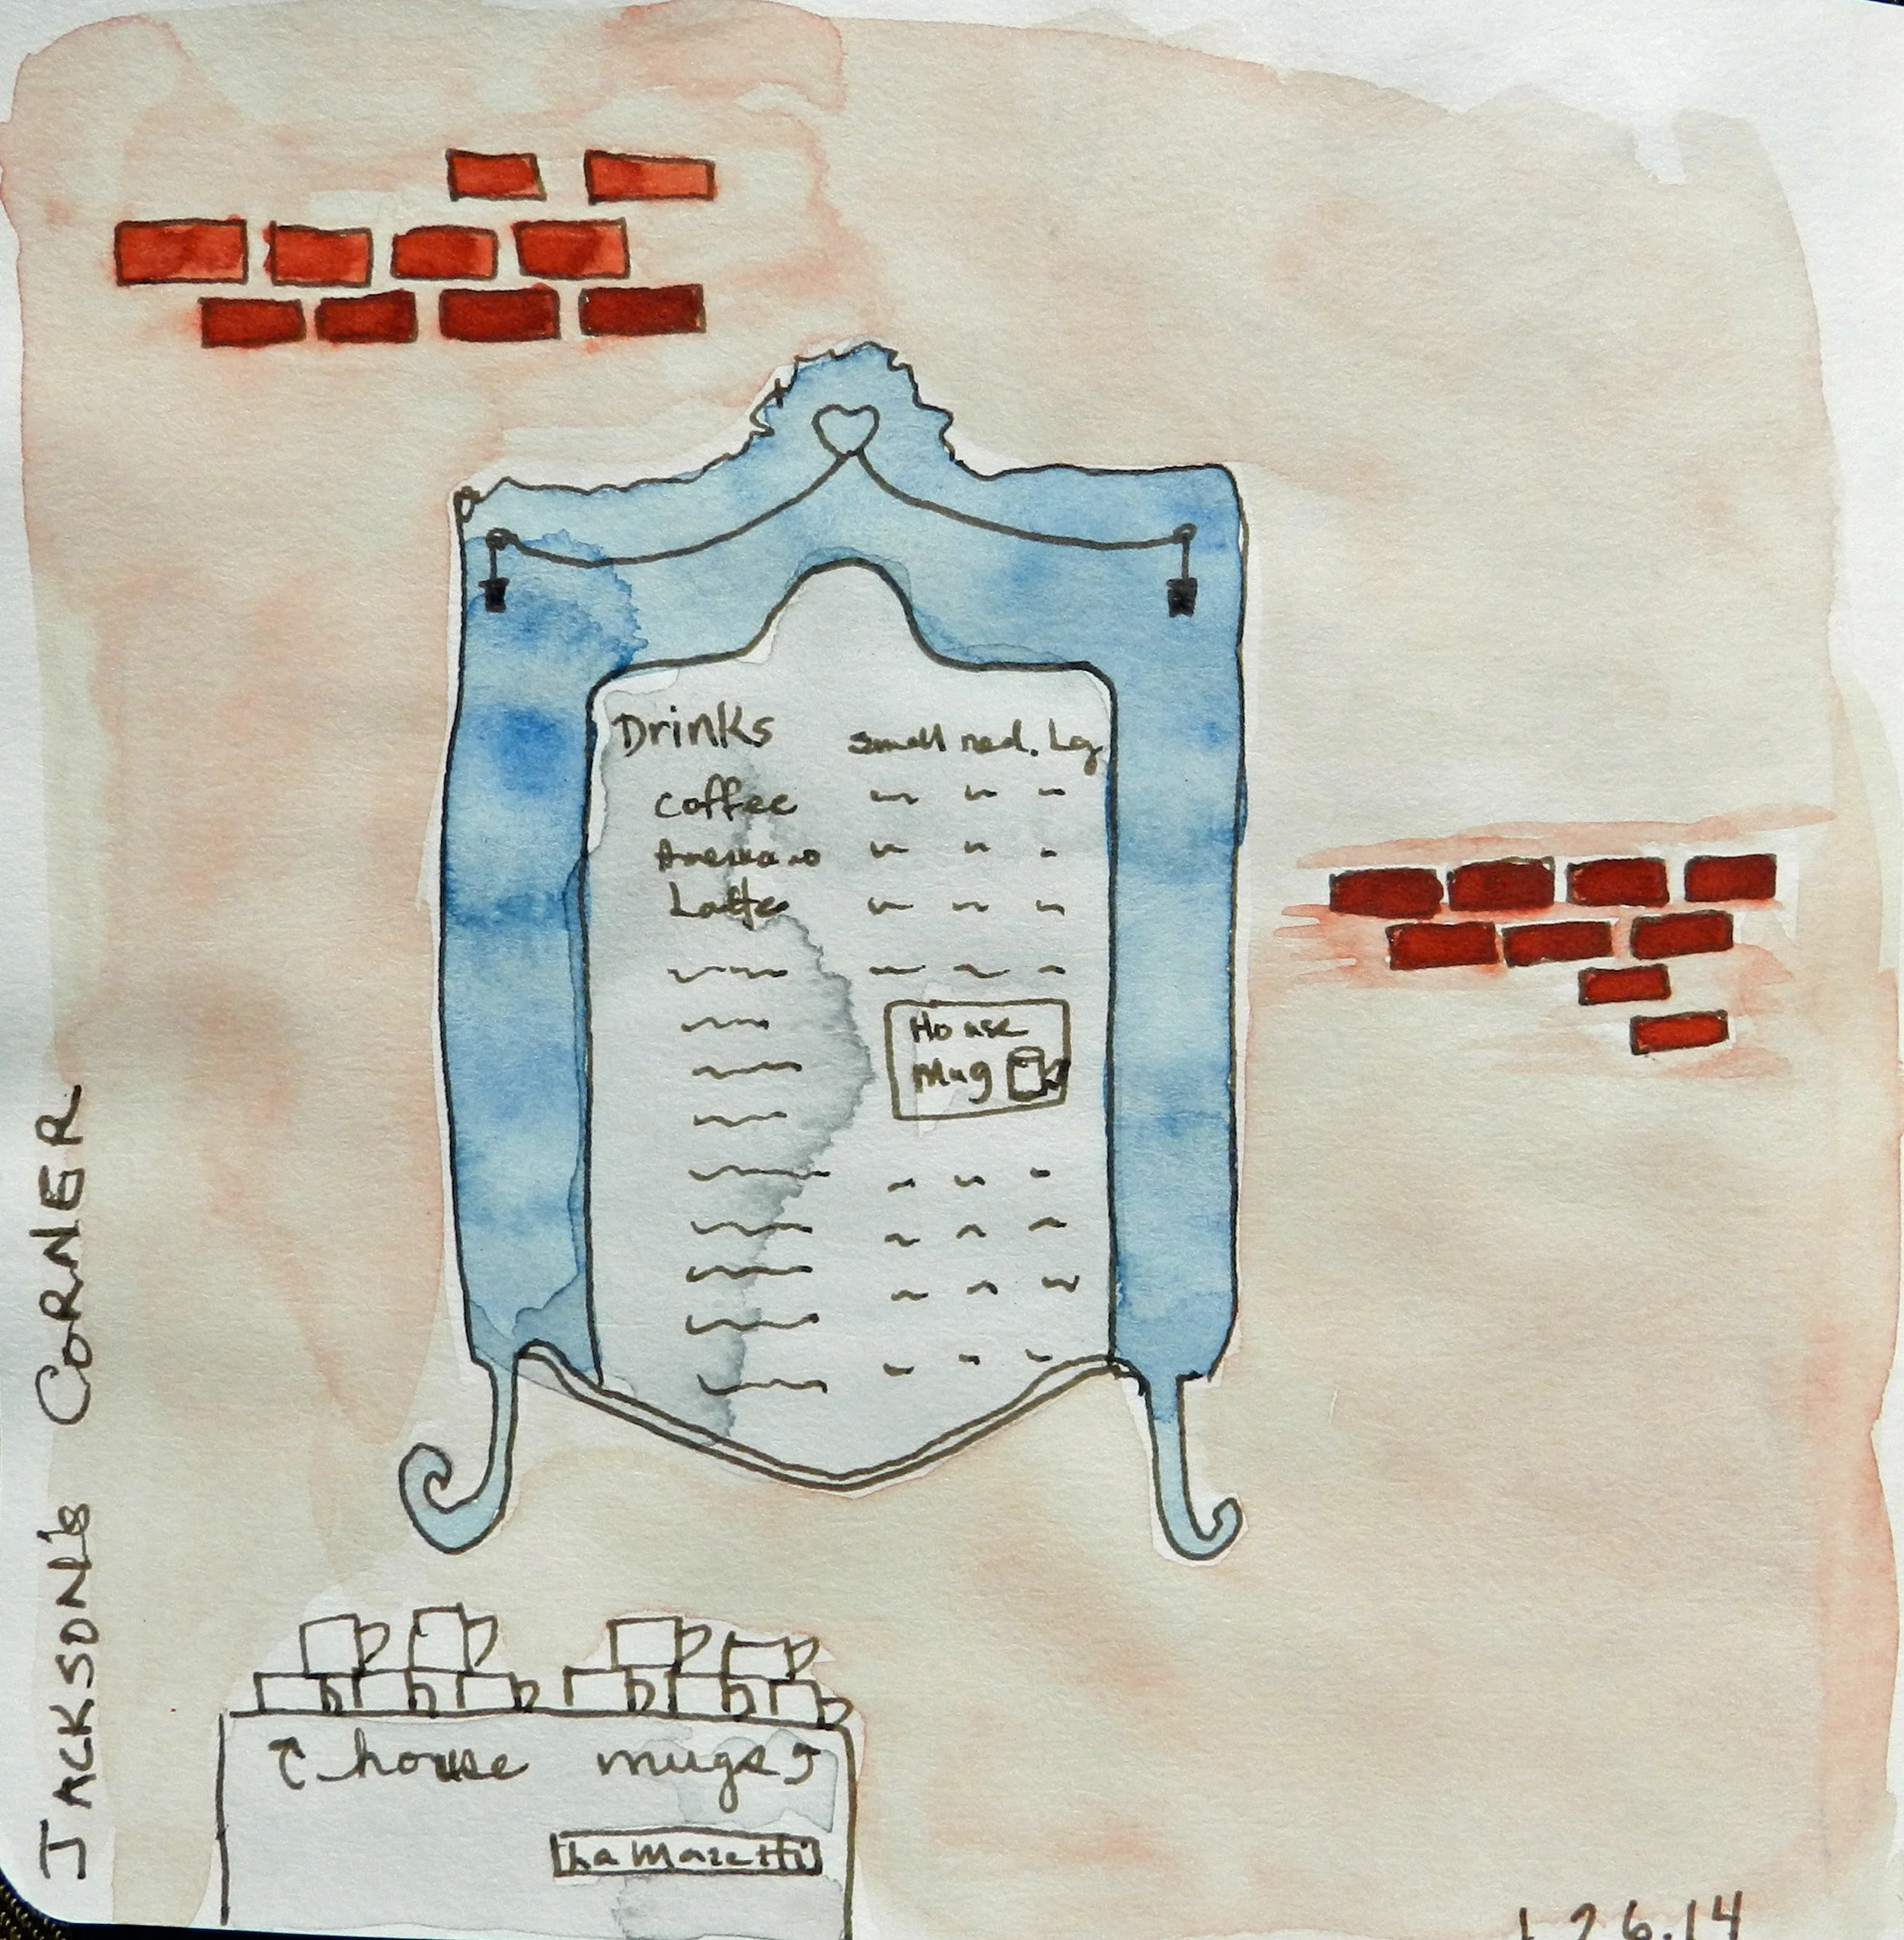 Drinks small med. Lg
Coffee
Americano
Latte
House
Mug
house mugs
La Mazetti
JACKSON's CORNER
1.26.14